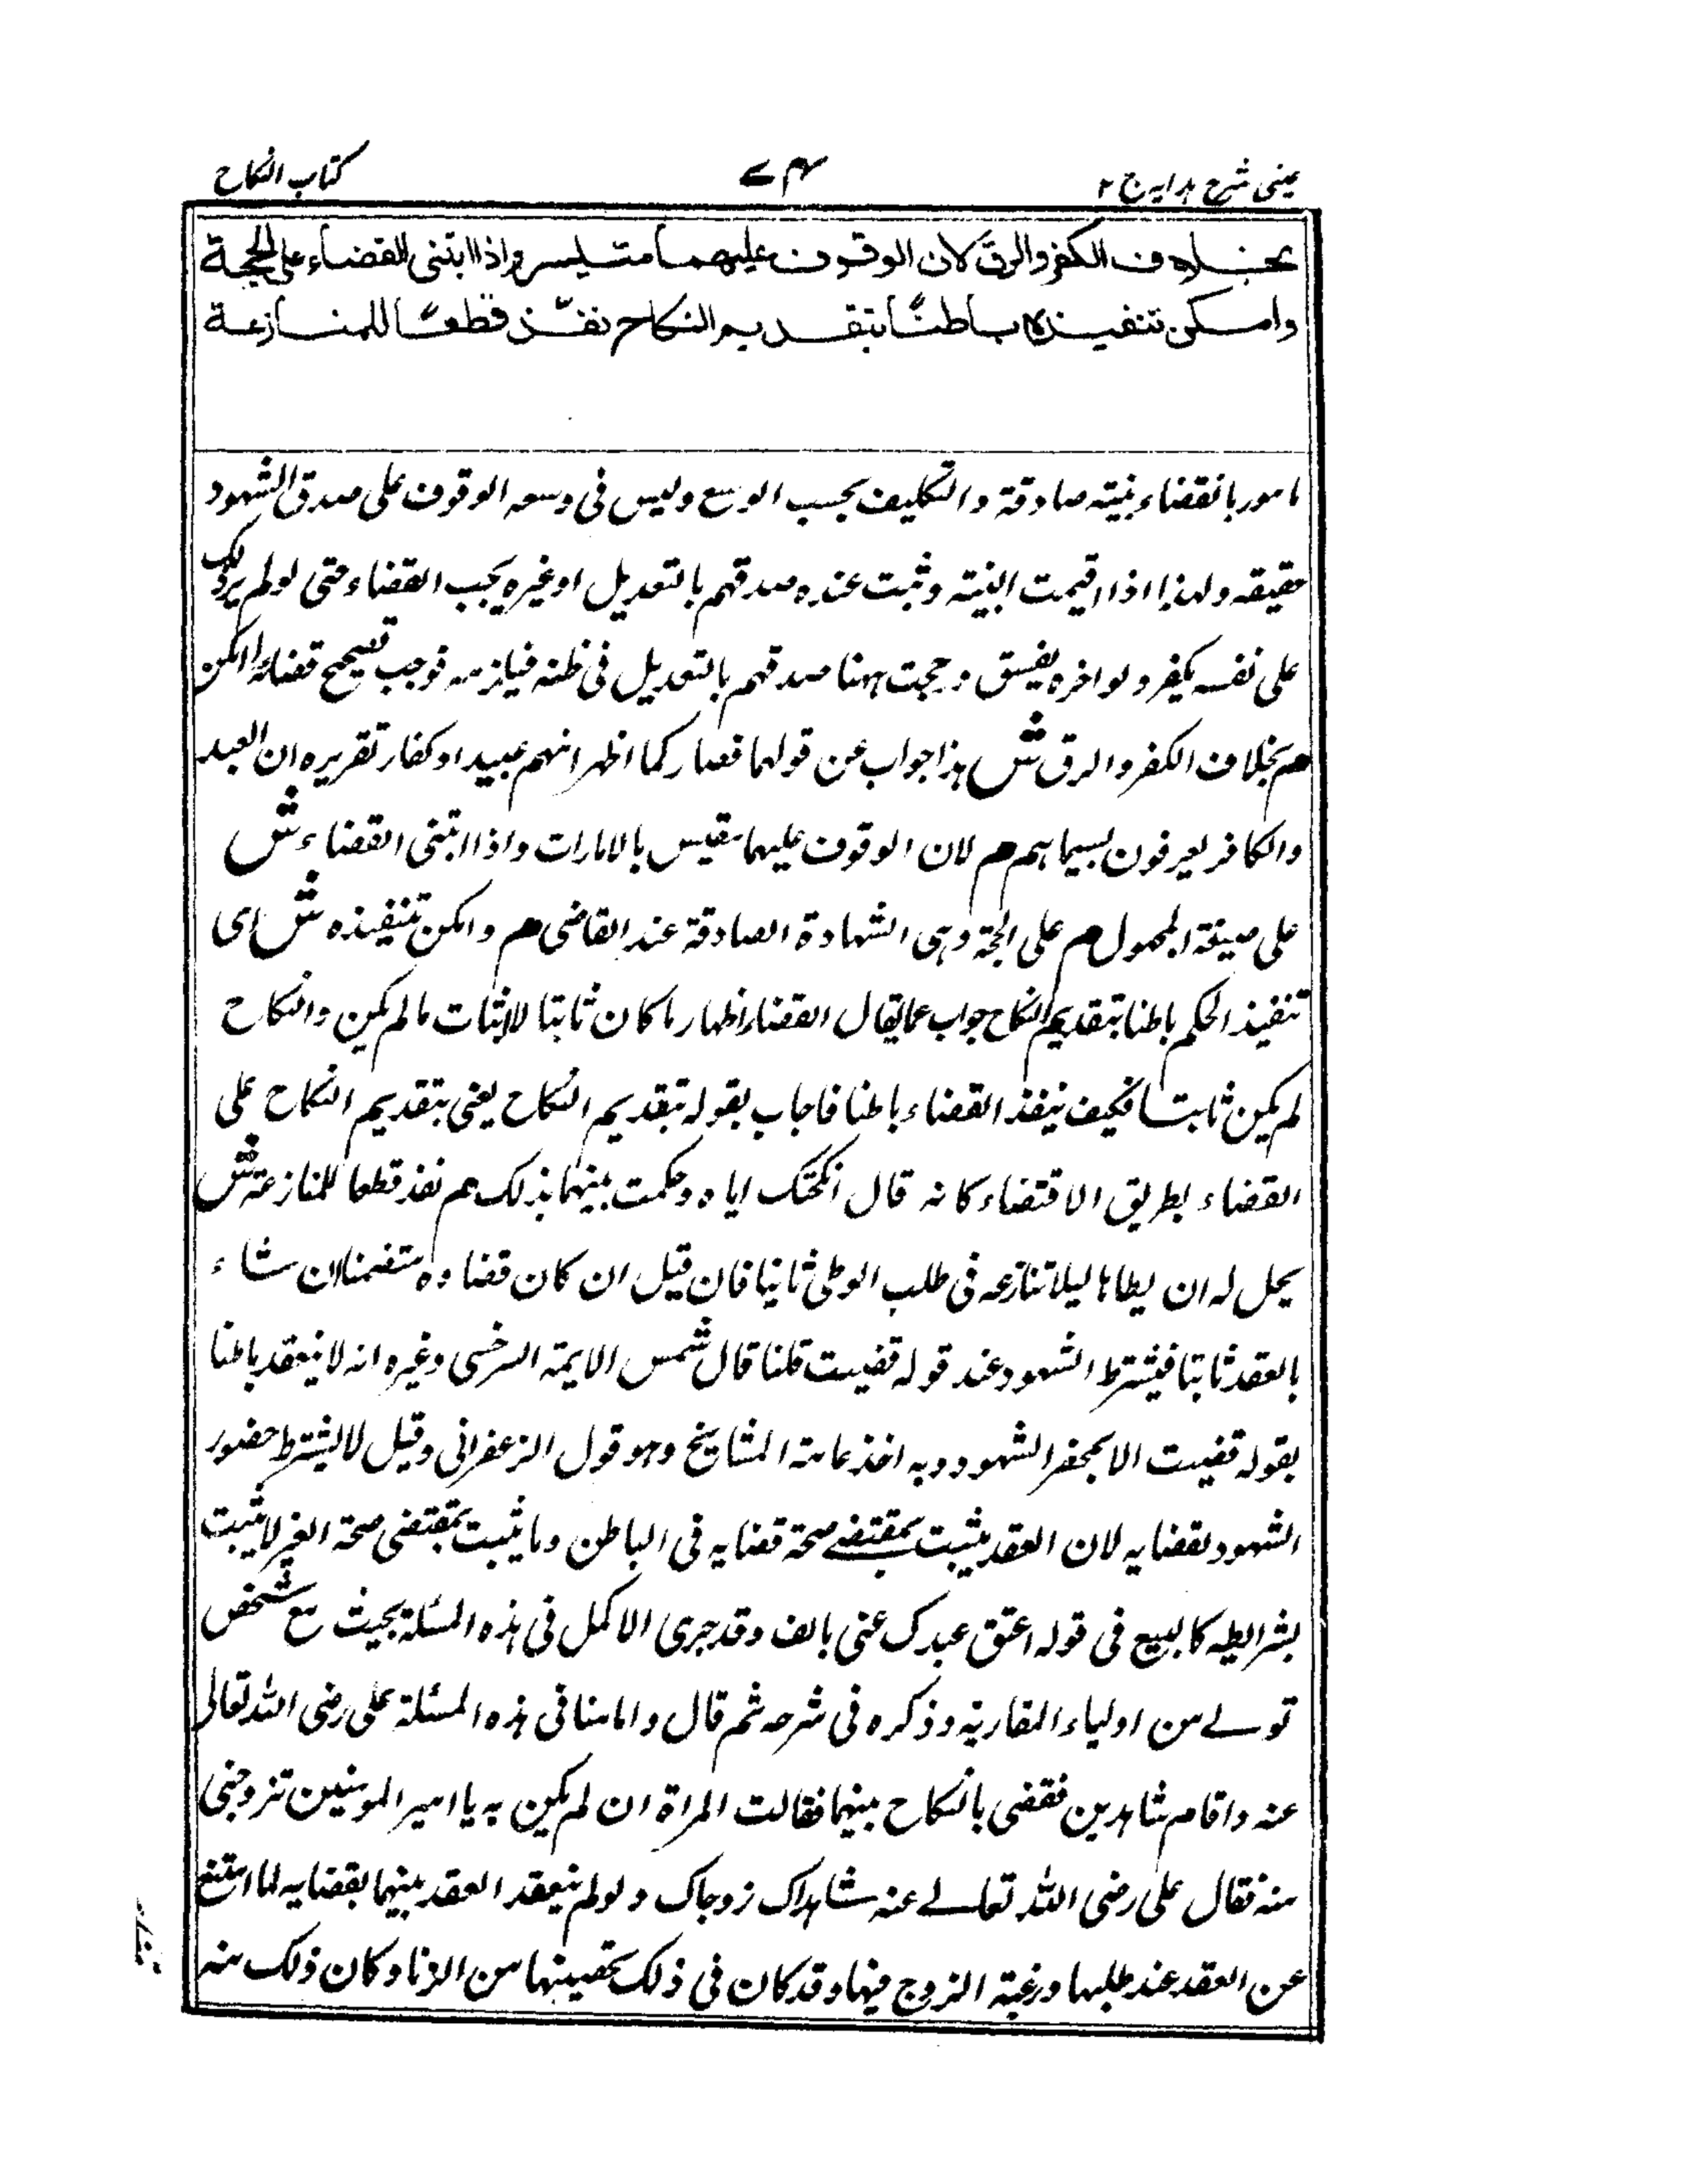 عینی شرح ہدایہ ج ۲
۷۴
کتاب النکاح
بخلاف الکفر والرق لان الوقوف علیهما متیسر واذا ابتنی القضاء علی الحجة
وامکن تنفیذه باطنًا بتقدیم النکاح نفّذ قطعًا للمنازعة
مامور بالقضاء ببینة صادقة والتکلیف بحسب الوسع ولیس فی وسعه الوقوف علی صدق الشهود
حقیقة ولهذا اذا اقیمت البینة وثبت عنده صدقهم بالتعدیل او غیره یجب القضاء حتی لو لم یر ذلک
علی نفسه یکفر ولو اخره یفسق وحجت ههنا صدقهم بالتعدیل فی ظنه فیلزمه فوجب تصحیح قضائه ما امکن
م بخلاف الکفر والرق ش هذا جواب عن قولهما فصار کما اظهر انهم عبید او کفار تقریره ان العبد
والکافر یعرفون بسیماهم م لان الوقوف علیهما متیسر بالامارات واذا ابتنی القضاء ش
علی صیغة المجهول م علی الحجة وهی الشهادة الصادقة عند القاضی م وامکن تنفیذه ش ای
تنفیذ الحکم باطنا بتقدیم النکاح جواب عما یقال القضاء اظهار ما کان ثابتا لا اثبات ما لم یکن والنکاح
لم یکن ثابتا فکیف ینفذ القضاء باطنا فاجاب بقوله بتقدیم النکاح یعنی بتقدیم النکاح علی
القضاء بطریق الاقتضاء کانه قال انکحتک ایاه وحکمت بینهما بذلک م نفذ قطعا للمنازعة ش
یحل له ان یطاها لیلا تنازعه فی طلب الوطی ثانیا فان قیل ان کان قضاؤه متضمنا ان شاء
بالعقد ثابتا فیشترط الشهود عند قوله قضیت قلنا قال شمس الایمة السرخسی وغیره انه لا ینعقد باطنا
بقوله قضیت الا بمحضر الشهود وبه اخذ عامة المشایخ وهو قول الزعفرانی وقیل لا یشترط حضور
الشهود لقضایه لان العقد یثبت بمقتضے صحة قضایه فی الباطن وما یثبت بمقتضی صحة الغیر لا یثبت
بشرایطه کالبیع فی قوله اعتق عبدک عنی بالف وقد جری الاکمل فی هذه المسئلة بحیث مع شخص
تولے من اولیاء المغاربة وذکره فی شرحه ثم قال وامامنا فی هذه المسئلة علی رضی الله تعالی
عنه واقام شاهدین فقضی بالنکاح بینهما فقالت المراة ان لم یکن به یا امیر المومنین تزوجنی
منه فقال علی رضی الله تعالے عنه شاهداک زوجاک ولو لم ینعقد العقد بینهما بقضایه لما امتنع
عن العقد عند طلبها ورغبة الزوج فیها وقد کان فی ذلک تحصینها من الزنا وکان ذلک منه